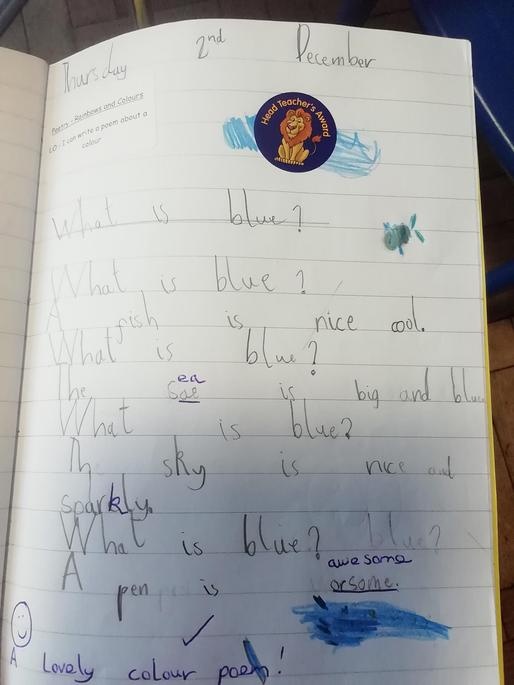 Thursday 2nd December
Poetry - Rainbows and Colours
LO - I can write a poem about a
colour
Head Teacher's Award
What is blue?
What is blue?
A fish is nice cool.
What is blue?
ea
The sae is big and blue
What is blue?
Th sky is nice and
sparkly.
What is blue? blue?
awesome
A pen is orsome.
A Lovely colour poem!